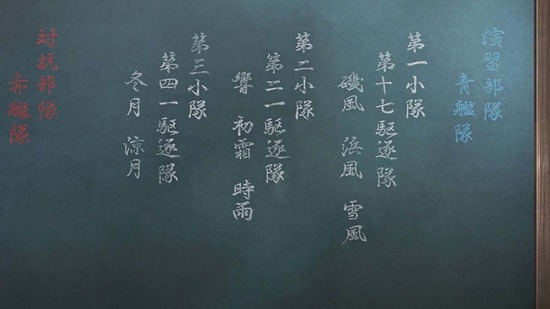 演習部隊
青艦隊
第一小隊
第十七駆逐隊
磯風 浜風 雪風
第二小隊
第二一駆逐隊
響 初霜 時雨
第三小隊
第四一駆逐隊
冬月 涼月
対抗部隊
赤艦隊